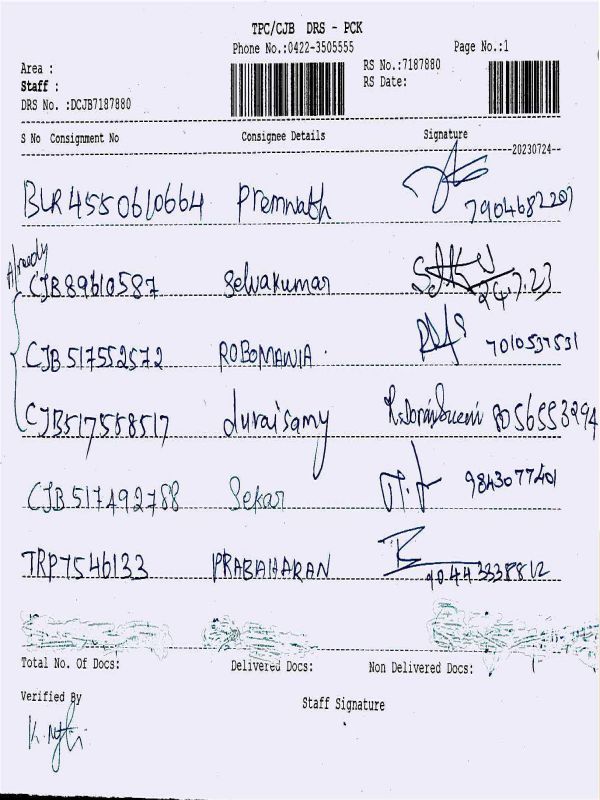 TPC/CJB DRS - PCK
Phone No.:0422-3505555 Page No.:1
Area : RS No.:7187880
Staff : RS Date:
DRS No. :DCJB7187880
S No Consignment No Consignee Details Signature
20230724
BLR4550610664 Premnath 7904682207
Already
CJB89610587 Selvakumar 24.7.23
CJB517552572 ROBOMANIA. 7010537531
CJB517558517 duraisamy 8056553294
CJB517492788 Sekar 9843077401
TRP7546133 PRABAHARAN 90443338812
Total No. Of Docs: Delivered Docs: Non Delivered Docs:
Verified By
Staff Signature